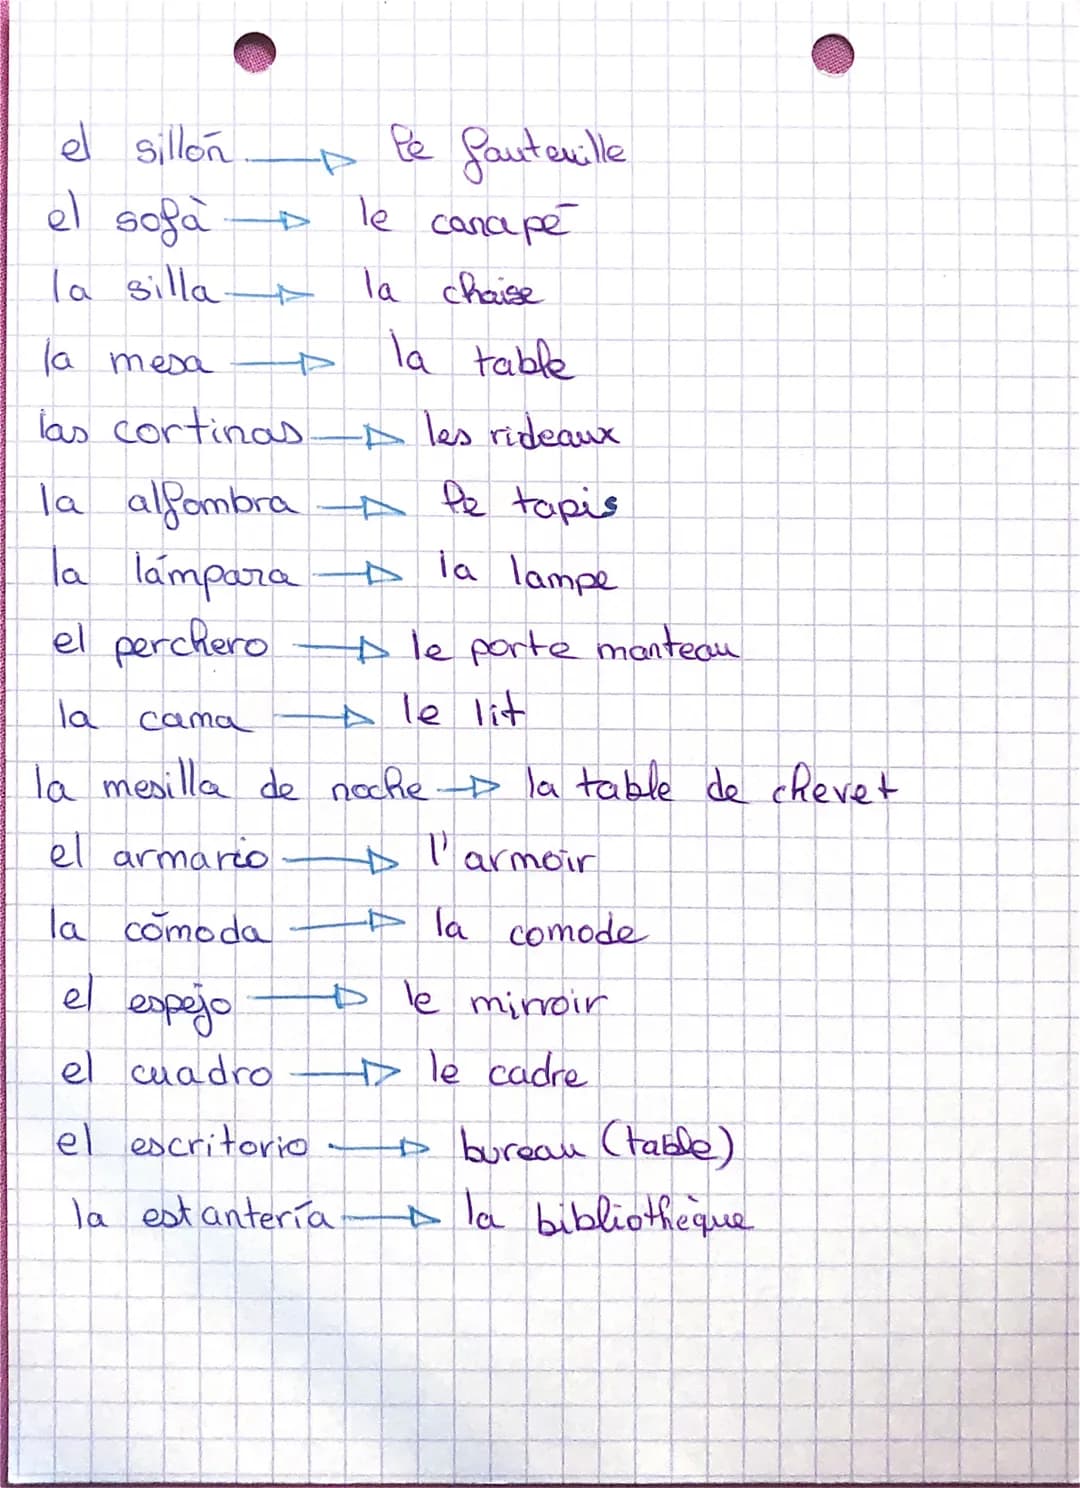 el sillōn → le fauteuille
el sofà → le canapē
la silla → la chaise
la mesa → la table
las cortinas → les rideaux
la alfombra → le tapis
la lámpara → la lampe
el perchero → le porte manteau
la cama → le lit
la mesilla de noche → la table de chevet
el armario → l'armoir
la cōmoda → la comode
el espejo → le mirroir
el cuadro → le cadre
el escritorio → bureau (table)
la estantería → la bibliothèque